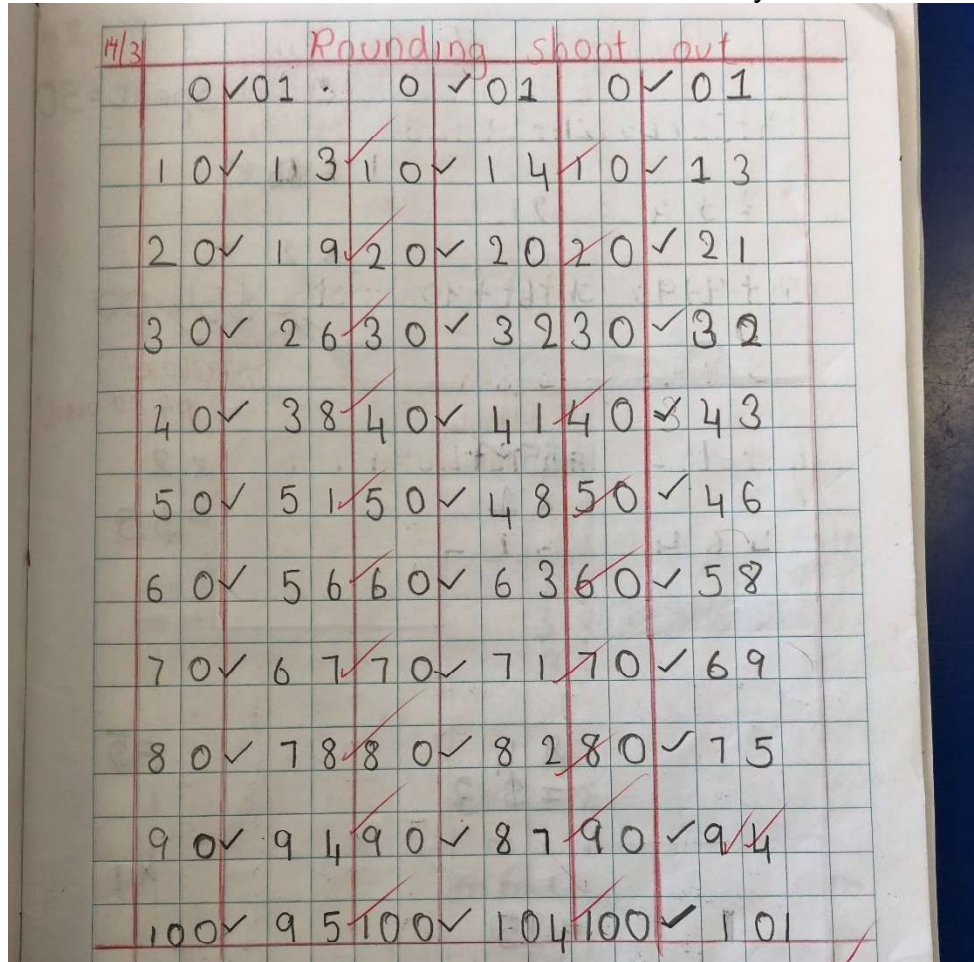 14/3 Rounding shoot out
0 ✓ 01 . 0 ✓ 01 0 ✓ 01
10 ✓ 13 10 ✓ 14 10 ✓ 13
20 ✓ 19 20 ✓ 20 20 ✓ 21
30 ✓ 26 30 ✓ 32 30 ✓ 32
40 ✓ 38 40 ✓ 41 40 ✓ 43
50 ✓ 51 50 ✓ 48 50 ✓ 46
60 ✓ 56 60 ✓ 63 60 ✓ 58
70 ✓ 67 70 ✓ 71 70 ✓ 69
80 ✓ 78 80 ✓ 82 80 ✓ 75
90 ✓ 94 90 ✓ 87 90 ✓ 94
100 ✓ 95 100 ✓ 104 100 ✓ 101